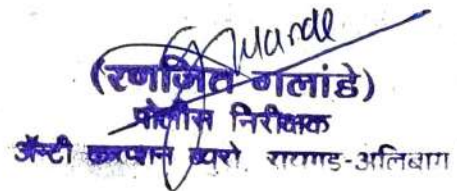 (रणजित गलांडे)
पोलीस निरीक्षक
ॲन्टी करप्शन ब्युरो रायगड-अलिबाग